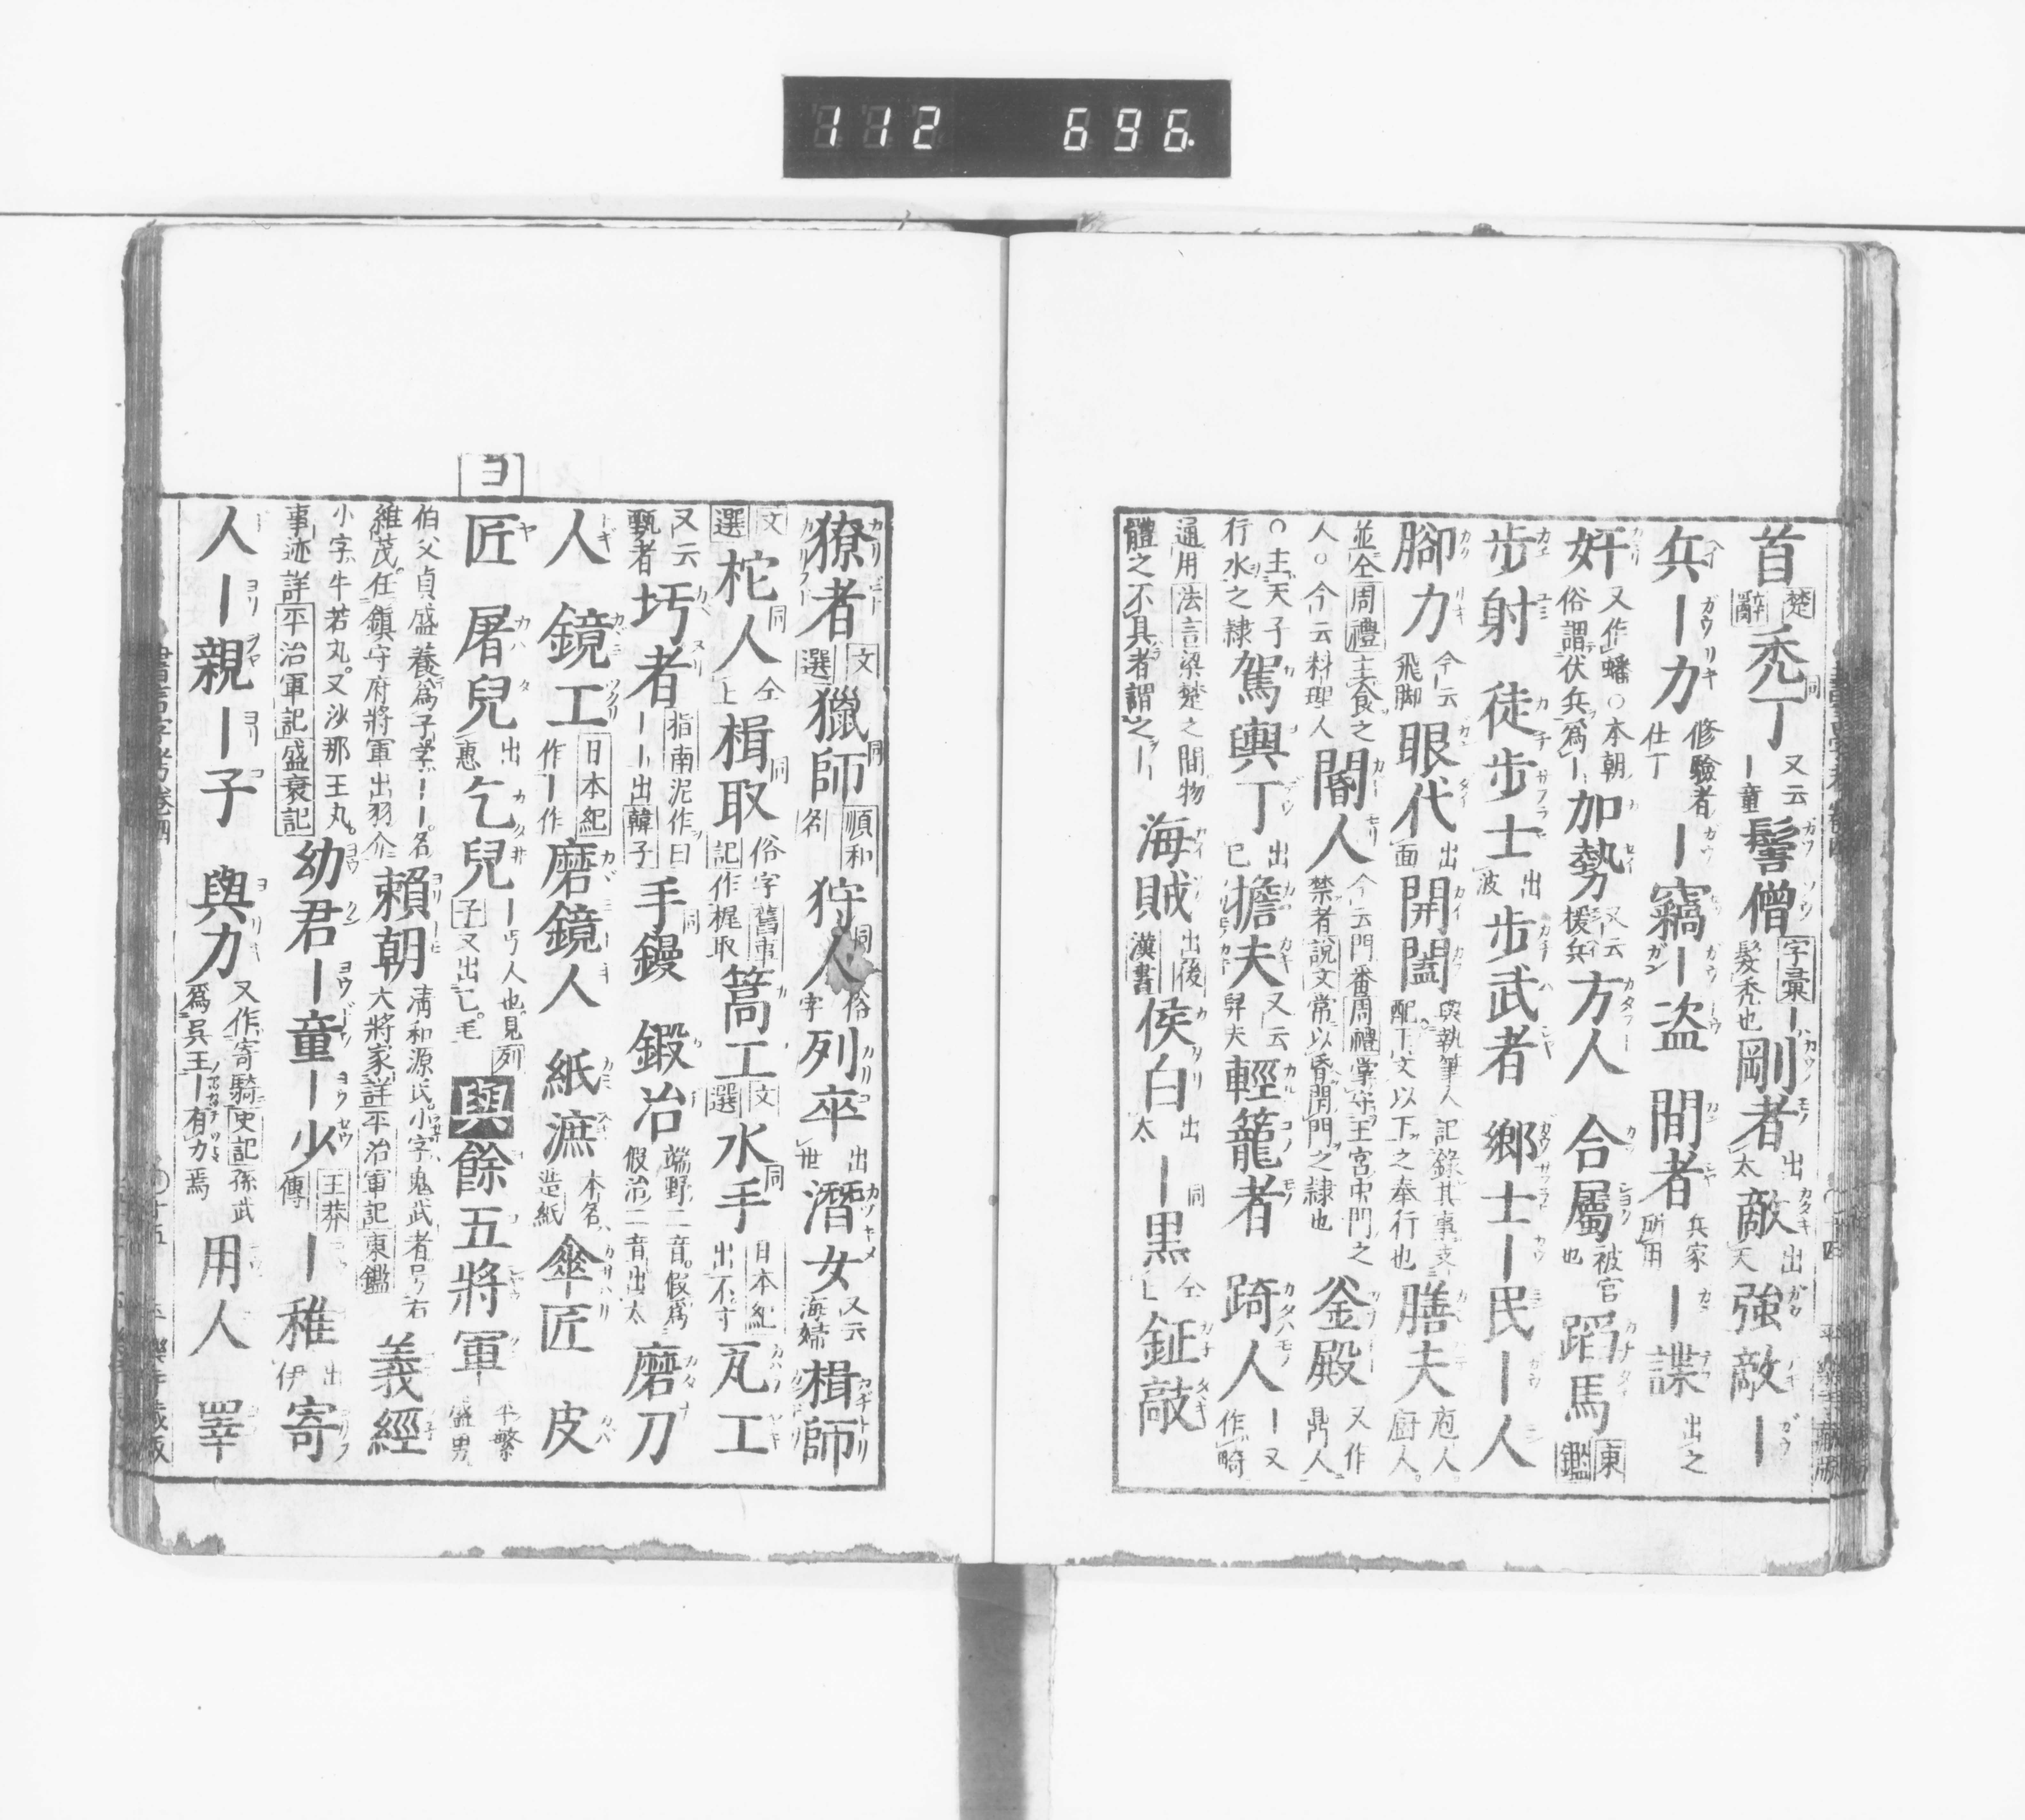 112 696.
首楚辭禿丁同又云ー童髻僧字彙ー髮禿也剛者出太敵出天強敵ー
兵ー力修驗者仕丁ー竊ー盜間者兵家所用ー諜出之
奸又作蟠○本朝俗謂伏兵爲ー加勢又云援兵方人合屬被官也蹈馬東鑑
步射徒步士出波步武者鄉士ー民ー人
腳力今云飛脚眼代出面開闔與執筆人記錄其事支配下文以下之奉行也膳夫庖人厨人
並仝周禮主食之人○今云料理人閽人今云門番周禮掌守王宮中門之禁者說文常以昏閉門之隷也釜殿又作鼎人
○主天子行水之隷駕輿丁出已擔夫又云舁夫輕籠者踦人ー又作畸
通用法言梁楚之間物體之不具者謂之ー海賊出後漢書侯白出太ー黒同仝上鉦敲
獠者文選獵師同順和名狩人同俗字列卒出世潛女又云海婦楫師
文選柁人同仝上楫取同俗字舊事記作梶取篙工文選水手同日本紀出不寸瓦工
又云甎者圬者指南泥作曰ーー出韓子手鏝同鍛冶端野二音假爲假冶二音出太磨刀
人鏡工日本紀作ー作磨鏡人紙漉本名造紙傘匠皮
ヨ
匠屠兒出惠乞兒ー丐人也見列子又出乙毛與餘五將軍平繁盛男
伯父貞盛養爲子字ーー名維茂任鎮守府將軍出羽介賴朝淸和源氏小字鬼武者号右大將家詳平治軍記東鑑義經
小字牛若丸又沙那王丸事迹詳平治軍記盛衰記幼君ー童ー少王莽傳ー稚出伊寄
人ー親ー子與力又作寄騎史記孫武爲吳王ー有力焉用人睪